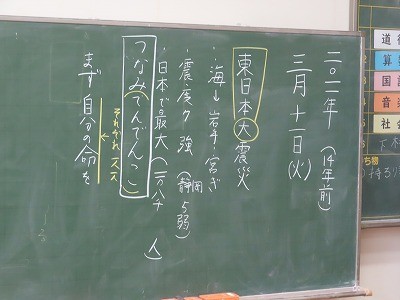 二〇一一年(14年前)
三月十一日(火)
東日本大震災
・海→岩手、宮ぎ
・震度7強(静岡5弱)
・日本で最大(一万八千人)
つなみ(てんでんこ)
それぞれ一人一人
まず自分の命を
道徳
算
国語
音楽
社会